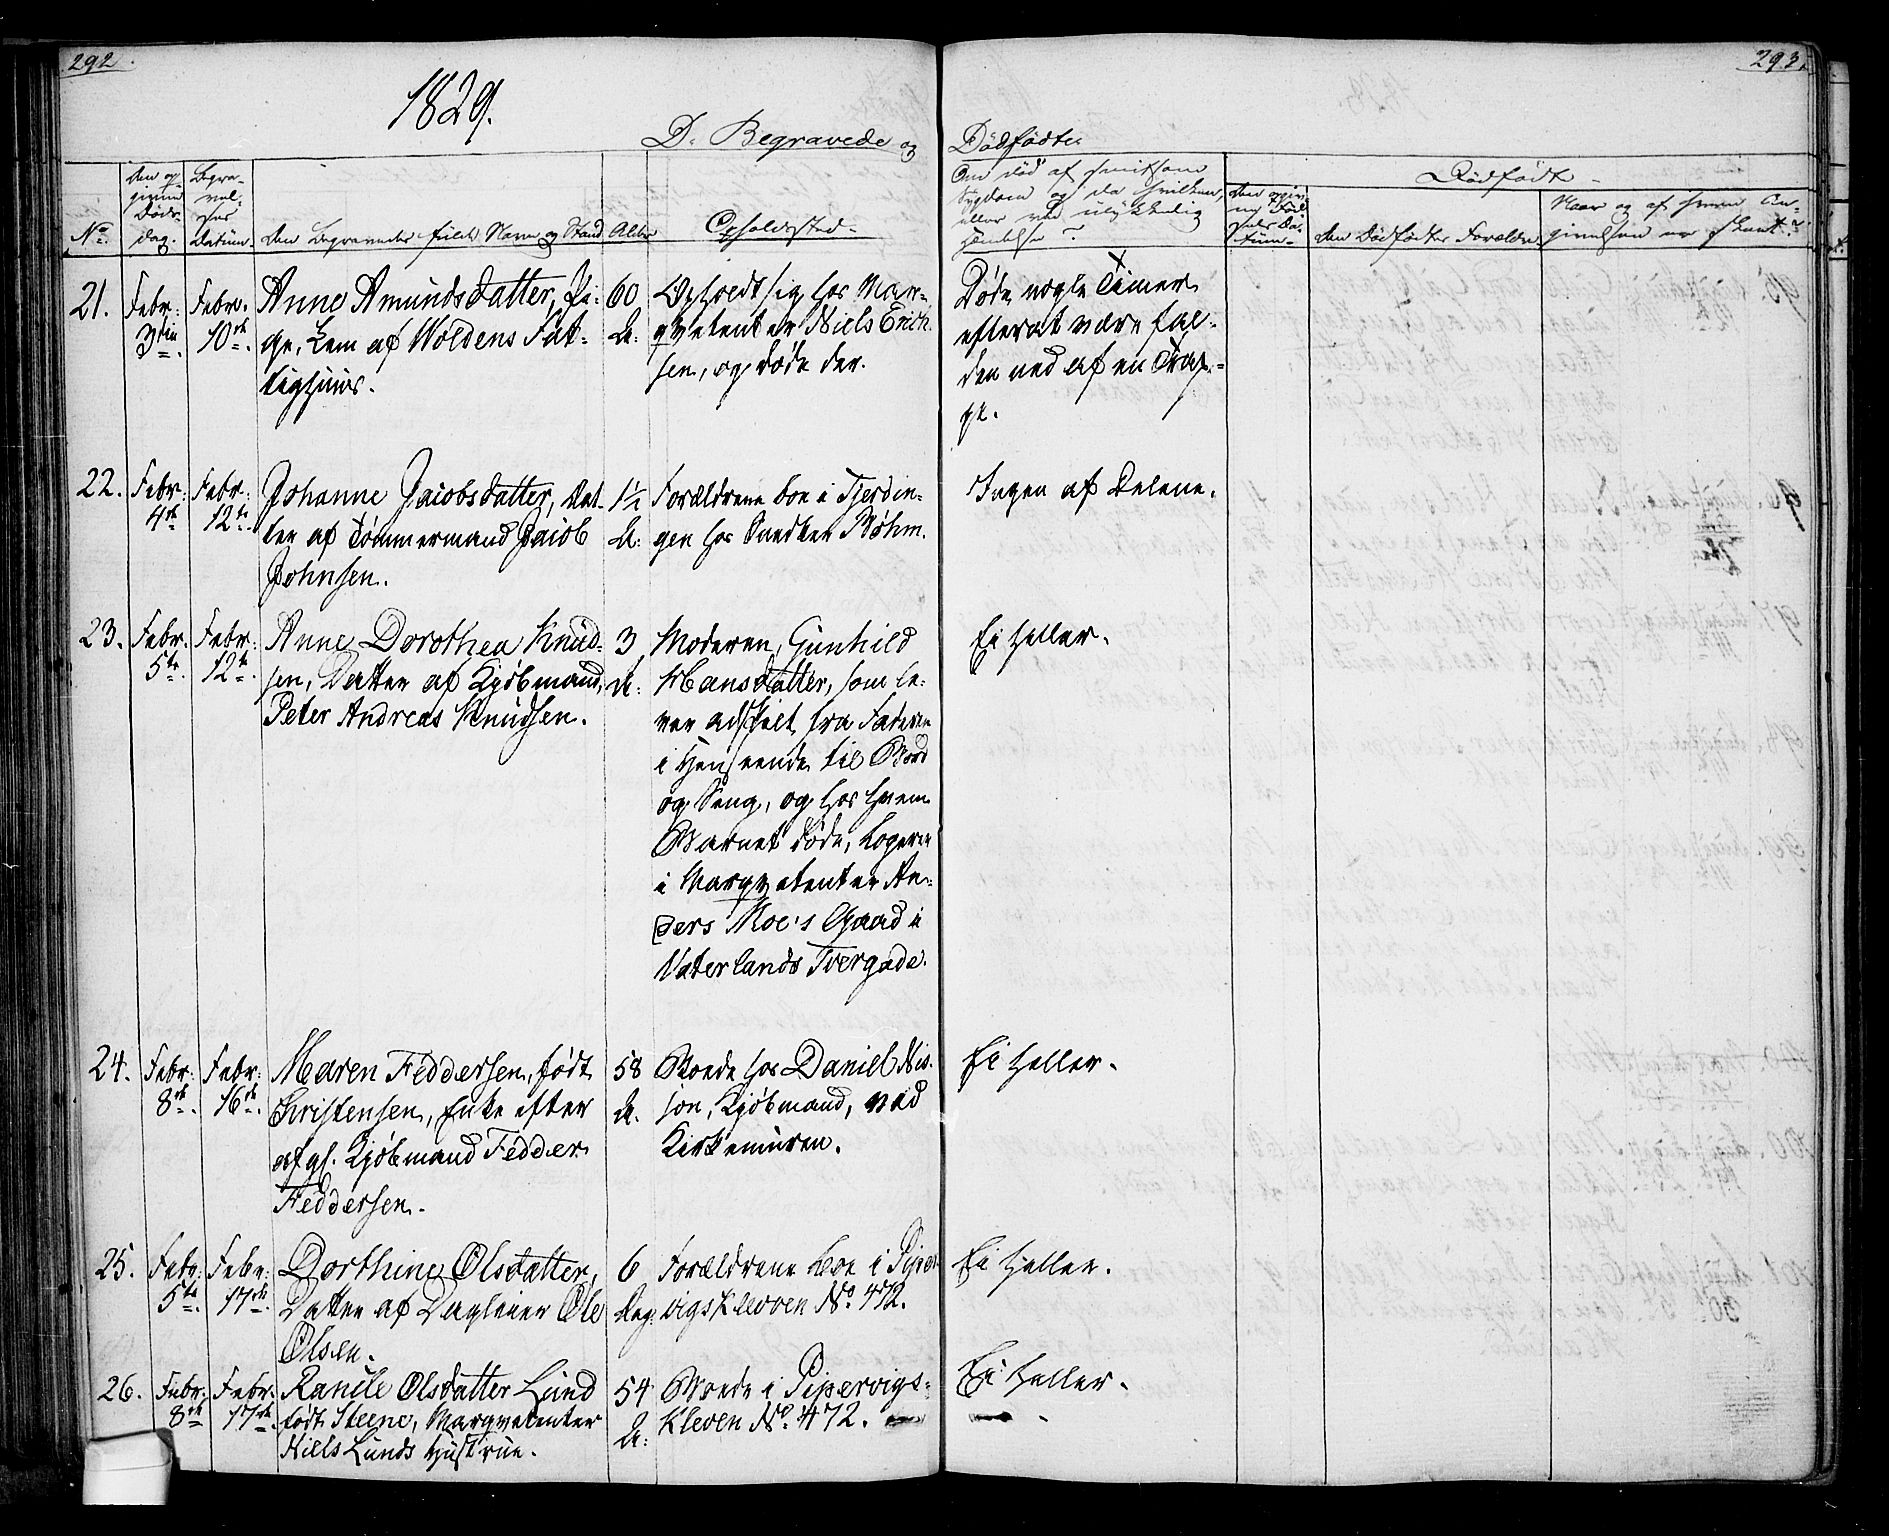 292.
293.
1829.
D. Begravede og Dødfødte.
No
Den op-
givne
Døds-
dag.
Begra-
vel-
ses
Datum.
Den Begravedes fulde Navn og Stand
Alder
Opholdssted.
Om død af smitsom
Sygdom og da hvilken,
eller ved ulykkelig
Hændelse?
Dødfødte.
Den Dødfødtes Forældre
Naar og af hvem An-
givelsen er skeet?
21.
Febr:
3die
Febr.
10de
Anne Amundsdatter, Pi-
ge, Lem af Woldens Fat-
tighuus.
60
A.
Opholdt sig hos Mar-
qvetenter Niels Erich-
sen, og døde der.
Døde nogle Timer
efter at være fal-
den ned af en Trap-
pe.
22.
Febr.
4de
Febr.
12te
Johanne Jacobsdatter, Dat-
ter af Tømmermand Jacob
Johnsen.
1½
A.
Forældrene boe i Fjerdin-
gen hos Snedker Bøhm.
Ingen af Delene.
23.
Febr.
5te
Febr.
12te
Anne Dorothea Knud-
sen, Datter af Kjøbmand
Peter Andreas Knudsen.
3
A.
Moderen, Gunhild
Hansdatter, som le-
ver adskilt fra Faderen
i Henseende til Bord
og Seng, og hos hvem
Barnet døde, logerer
i Marqvetenter An-
ders Moe's Gaard i
Vaterlands Tvergade.
Ei heller.
24.
Febr.
8de
Febr:
16de
Maren Feddersen, født
Christensen, Enke efter
afgl. Kjøbmand Fedder
Feddersen.
58
A.
Boede hos Daniel Nis-
son, Kjøbmand, ved
Kirkemuren.
Ei heller.
25.
Febr.
5te
Febr:
17de
Dorthine Olsdatter,
Datter af Dagleier Ole
Olsen.
6
Dag.
Forældrene boe i Piper-
vigskleven No. 472.
Ei heller.
26.
Febr.
8de
Febr.
17de
Ranele Olsdatter Lund
født Steene, Marqvetenter
Niels Lunds Hustrue.
54
A.
Boede i Pipervigs-
kleven No. 472.
Ei heller.